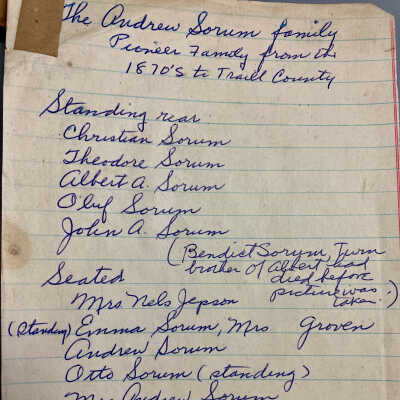 The Andrew Sorum family
Pioneer Family from the
1870's to Traill County
Standing rear
Christian Sorum
Theodore Sorum
Albert A. Sorum
Oluf Sorum
John A. Sorum
(Bendict Sorum, Twin
brother of Albert had
died before
picture was
taken.)
Seated
Mrs Nels Jepson
(standing) Emma Sorum, Mrs Groven
Andrew Sorum
Otto Sorum (standing)
Mrs Andrew Sorum